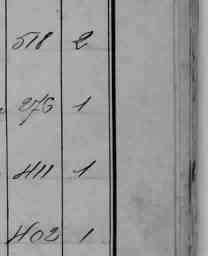 518 2
276 1
411 1
402 1